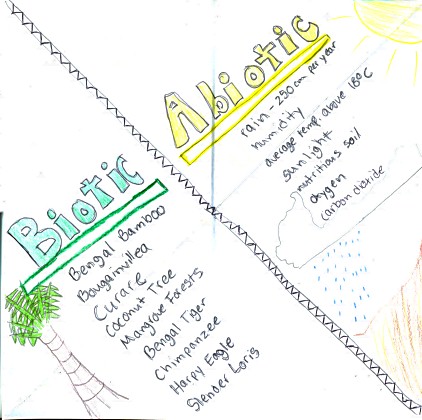 Abiotic
rain - 250 cm per year
humidity
average temp. above 18°C
sunlight
nutritious soil
oxygen
carbon dioxide
Biotic
Bengal Bamboo
Bougainvillea
Curare
Coconut Tree
Mangrove Forests
Bengal Tiger
Chimpanzee
Harpy Eagle
Slender Loris